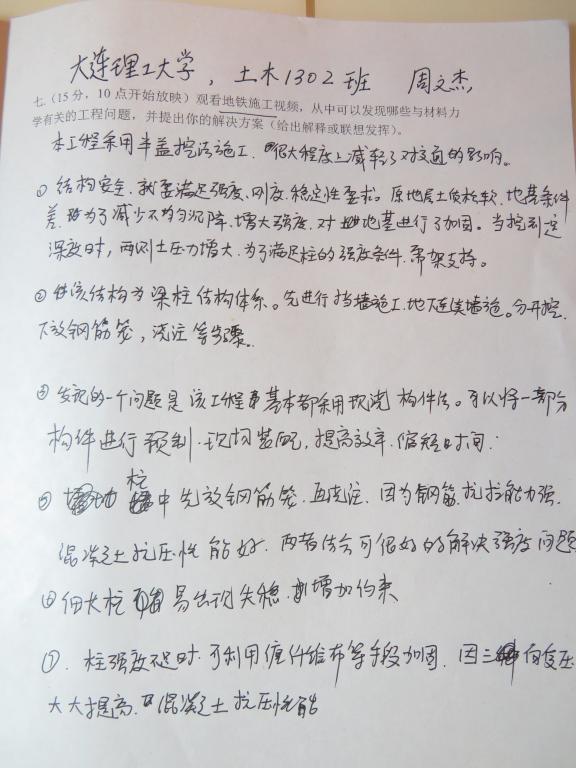 大连理工大学，土木1302班 周文杰，
七.（15分，10点开始放映）观看地铁施工视频，从中可以发现哪些与材料力
学有关的工程问题，并提出你的解决方案（给出解释或联想发挥）。
本工程采用半盖挖法施工.很大程度上减轻了对交通的影响。
① 结构安全.就要满足强度、刚度.稳定性要求。原地层土质松软.地基条件
差.为了减少不均匀沉降.增大强度.对地基进行了加固。当挖到一定
深度时，两侧土压力增大.为了满足柱的强度条件.带架支持。
② 该结构为梁柱结构体系。先进行挡墙施工.地下连续墙施.分开挖.
下放钢筋笼，浇注等步骤.
③ 发现的一个问题是该工程基本都采用现浇构件法。可以将一部分
构件进行预制.现场装配，提高效率.缩短时间.
柱中先放钢筋笼.再浇注.因为钢筋抗拉能力强.
混凝土抗压性能好.两者结合可很好的解决强度问题
细长柱易出现失稳.增加约束
⑦.柱强度不足时.可利用缠纤维布等手段加固.因三向受压
大大提高.混凝土抗压性能